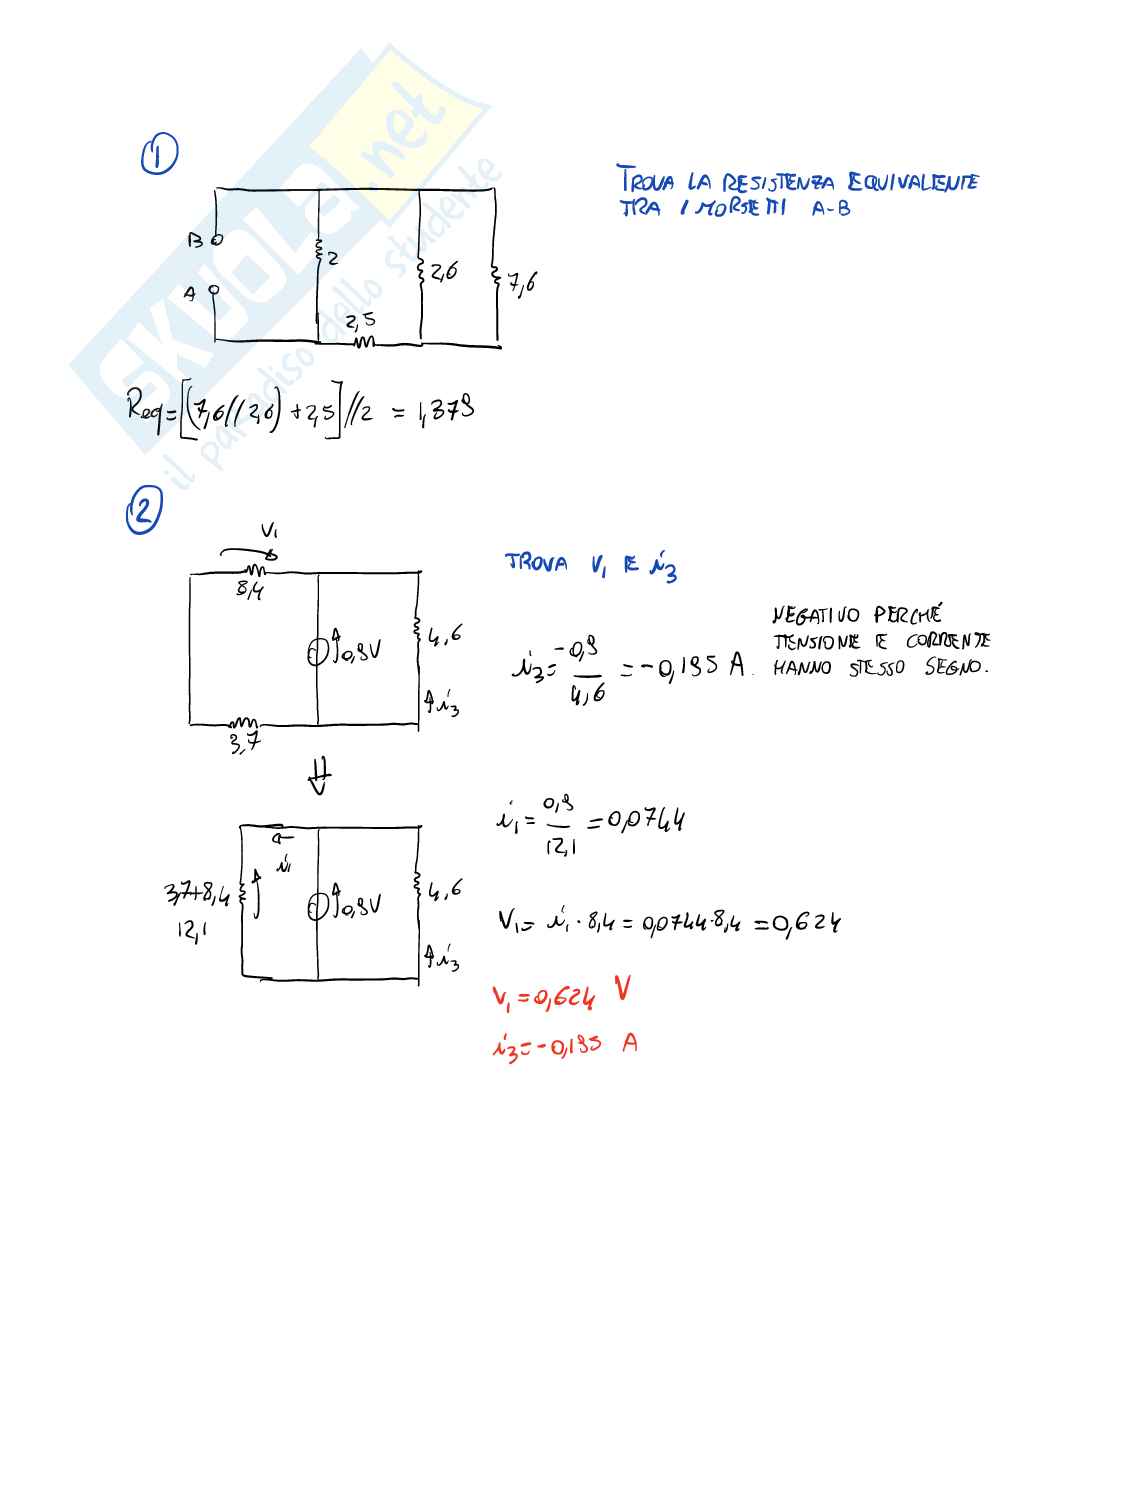 SKUOLA.net
il paradiso dello studente
1
TROVA LA RESISTENZA EQUIVALENTE
TRA I MORSETTI A-B
B
A
2
2,6
7,6
2,5
Req=[(7,6//2,6)+2,5]//2 = 1,379
2
V1
8,4
0,9V
4,6
i3
3,7
TROVA V1 E i3
i3= -0,9/4,6 = -0,195 A.
NEGATIVO PERCHÉ
TENSIONE E CORRENTE
HANNO STESSO SEGNO.
3,7+8,4
12,1
i1
0,9V
4,6
i3
i1 = 0,9/12,1 = 0,0744
V1= i1 · 8,4 = 0,0744·8,4 = 0,624
V1 = 0,624 V
i3= -0,195 A